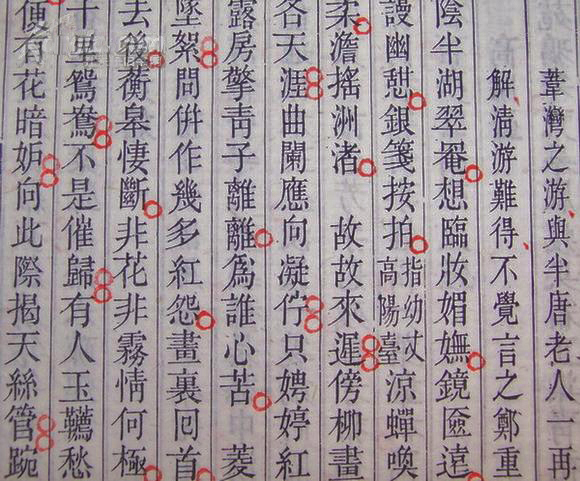 葦灣之游與半唐老人一再
解清游難得不覺言之鄭重
陰半湖翠罨想臨妝媚嫵鏡匳遠
謾幽愬銀箋按拍指幼杖高陽臺涼蟬喚
柔澹搖洲渚 故故來遲傍柳畫
各天涯曲闌應向凝佇只娉婷紅
露房擎青子離離為誰心苦 菱
墜絮問併作幾多紅怨畫裏回首
去後蘅皋悽斷非花非霧情何極
十里鴛鴦不是催歸有人玉鞴愁
便有花暗妒向此際揭天絲管踠